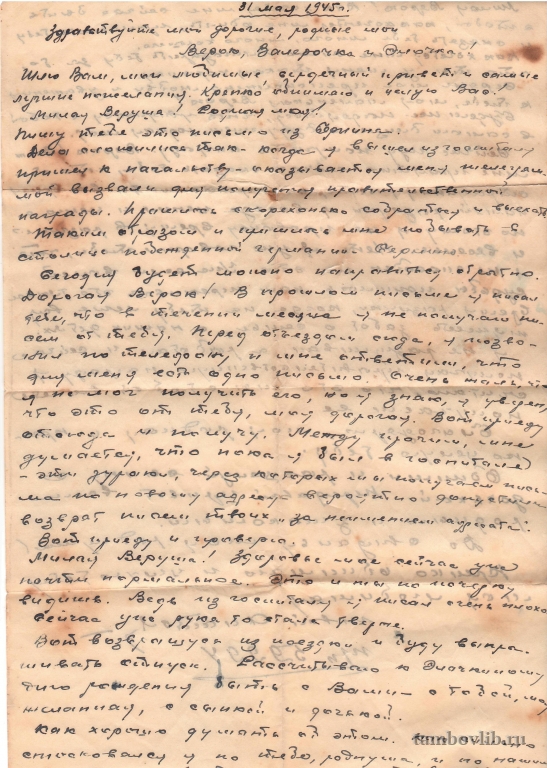 31 мая 1945 г.
Здравствуйте мои дорогие, родные мои
Верою, Валерочка и Элочка!
Шлю Вам, мои любимые, сердечный привет и самые
лучшие пожелания. Крепко обнимаю и целую Вас!
Милая Веруша! Родная моя!
Пишу тебе это письмо из Берлина.
Дела сложились так - когда я вышел из госпиталя
пришел к начальству - оказывается меня телеграм-
мой вызвали для получения правительственной
награды. Пришлось скорехонько собраться и выехать
Таким образом и пришлось мне побывать в
столице побежденной германии - Берлине.
Сегодня будет можно направиться обратно.
Дорогая Верою! В прошлом письме я писал
тебе, что в течении месяца я не получал пи-
сем от тебя. Перед отъездом сюда, я позво-
нил по телефону и мне ответили, что
для меня есть одно письмо. Очень жаль, что
я не мог получить его, но я знаю, я уверен,
что это от тебя, моя дорогая. Вот приеду
отсюда и получу. Между прочим, мне
думается, что пока я был в госпитале
- эти дураки, через которых мы получаем пись-
ма по новому адресу вероятно допустили
возврат писем твоих, за неимением адресата.
Вот приеду и проверю.
Милая Веруша! Здоровье мое сейчас уже
почти нормальное. Это и ты по почерку
видишь. Ведь из госпиталя я писал очень плохо
Сейчас уже рука то стала тверже.
Вот возвращусь из поездки и буду выпра-
шивать отпуск. Рассчитываю к Элочкиному
дню рождения быть с Вами - с тобой, моя
желанная, с сынкой и дочкой.
Как хорошо думать об этом.
стосковался я по тебе, роднуша, и по нашим
tambovlib.ru